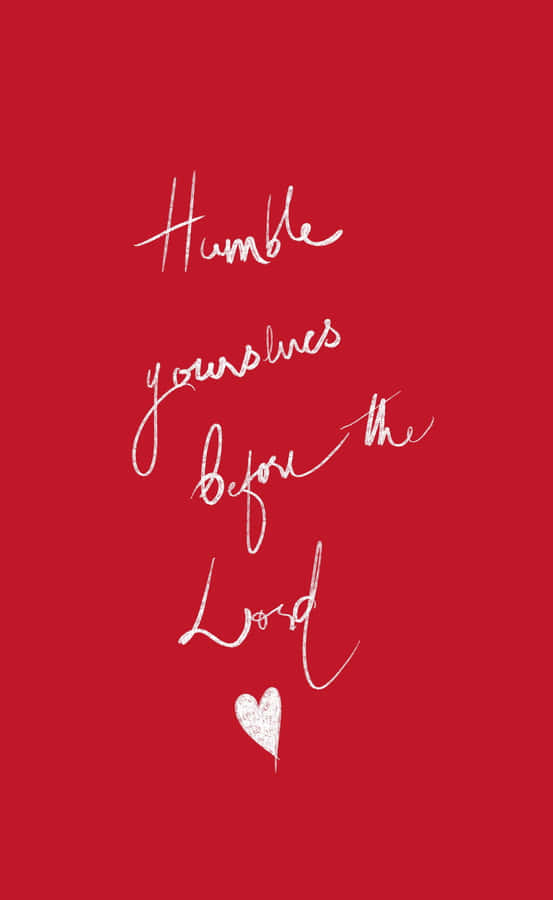 Humble
yourslves
before the
Lord